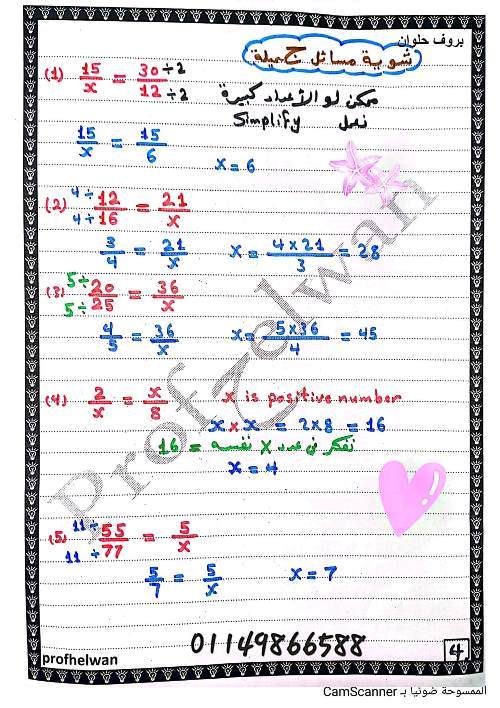 بروف حلوان
شوية مسائل جميلة
(1) 15/x = 30÷2/12÷2
ممكن لو الأعداد كبيرة
نعمل Simplify
15/x = 15/6
x = 6
(2) 4÷12/4÷16 = 21/x
3/4 = 21/x x = 4×21/3 = 28
(3) 5÷20/5÷25 = 36/x
4/5 = 36/x x = 5×36/4 = 45
(4) 2/x = x/8 x is positive number
x × x = 2×8 = 16
نفكر فى عدد × نفسه = 16
x = 4
(5) 11÷55/11÷77 = 5/x
5/7 = 5/x x = 7
Profhelwan
01149866588
profhelwan
4
الممسوحة ضوئيا بـ CamScanner